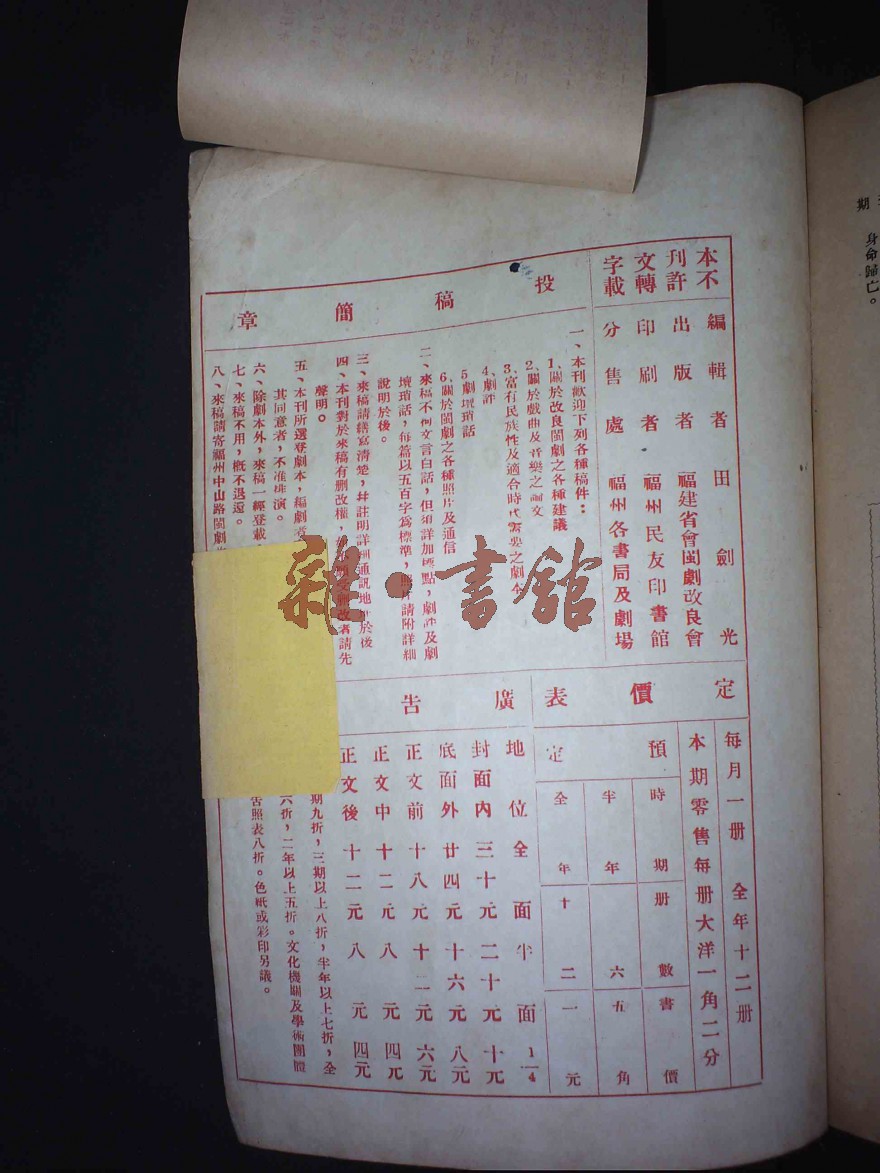 本刊文字
不許轉載
編輯者 田劍光
出版者 福建省會閩劇改良會
印刷者 福州民友印書館
分售處 福州各書局及劇場
投稿簡章
一、本刊歡迎下列各種稿件：
1、關於改良閩劇之各種建議
2、關於戲曲及音樂之論文
3、富有民族性及適合時代需要之劇本
4、劇評
5 劇壇瑣話
6、關於閩劇之各種照片及通信
二、來稿不拘文言白話，但須詳加標點，劇評及劇
壇瑣話，每篇以五百字爲標準，照片請附詳細
說明於後。
三、來稿請繕寫清楚，幷註明詳細通訊地址於後
四、本刊對於來稿有删改權，不願受删改者請先
聲明。
五、本刊所選登劇本，編劇者
其同意者，不准排演。
六、除劇本外，來稿一經登載，
七、來稿不用，概不退還。
八、來稿請寄福州中山路閩劇
定價表
每月一册 全年十二册
本期零售每册大洋一角二分
預定
時期 册數 書價
半年 六 五角
全年 十二 一元
廣告
地位 全面 半面 1/4
封面內 三十元 二十元 十元
底面外 廿四元 十六元 八元
正文前 十八元 十二元 六元
正文中 十二元 八元 四元
正文後 十二元 八元 四元
期九折，三期以上八折，半年以上七折，全
六折，二年以上五折。文化機關及學術團體
告照表八折。色紙或彩印另議。
雜·書館
期
身命歸亡。